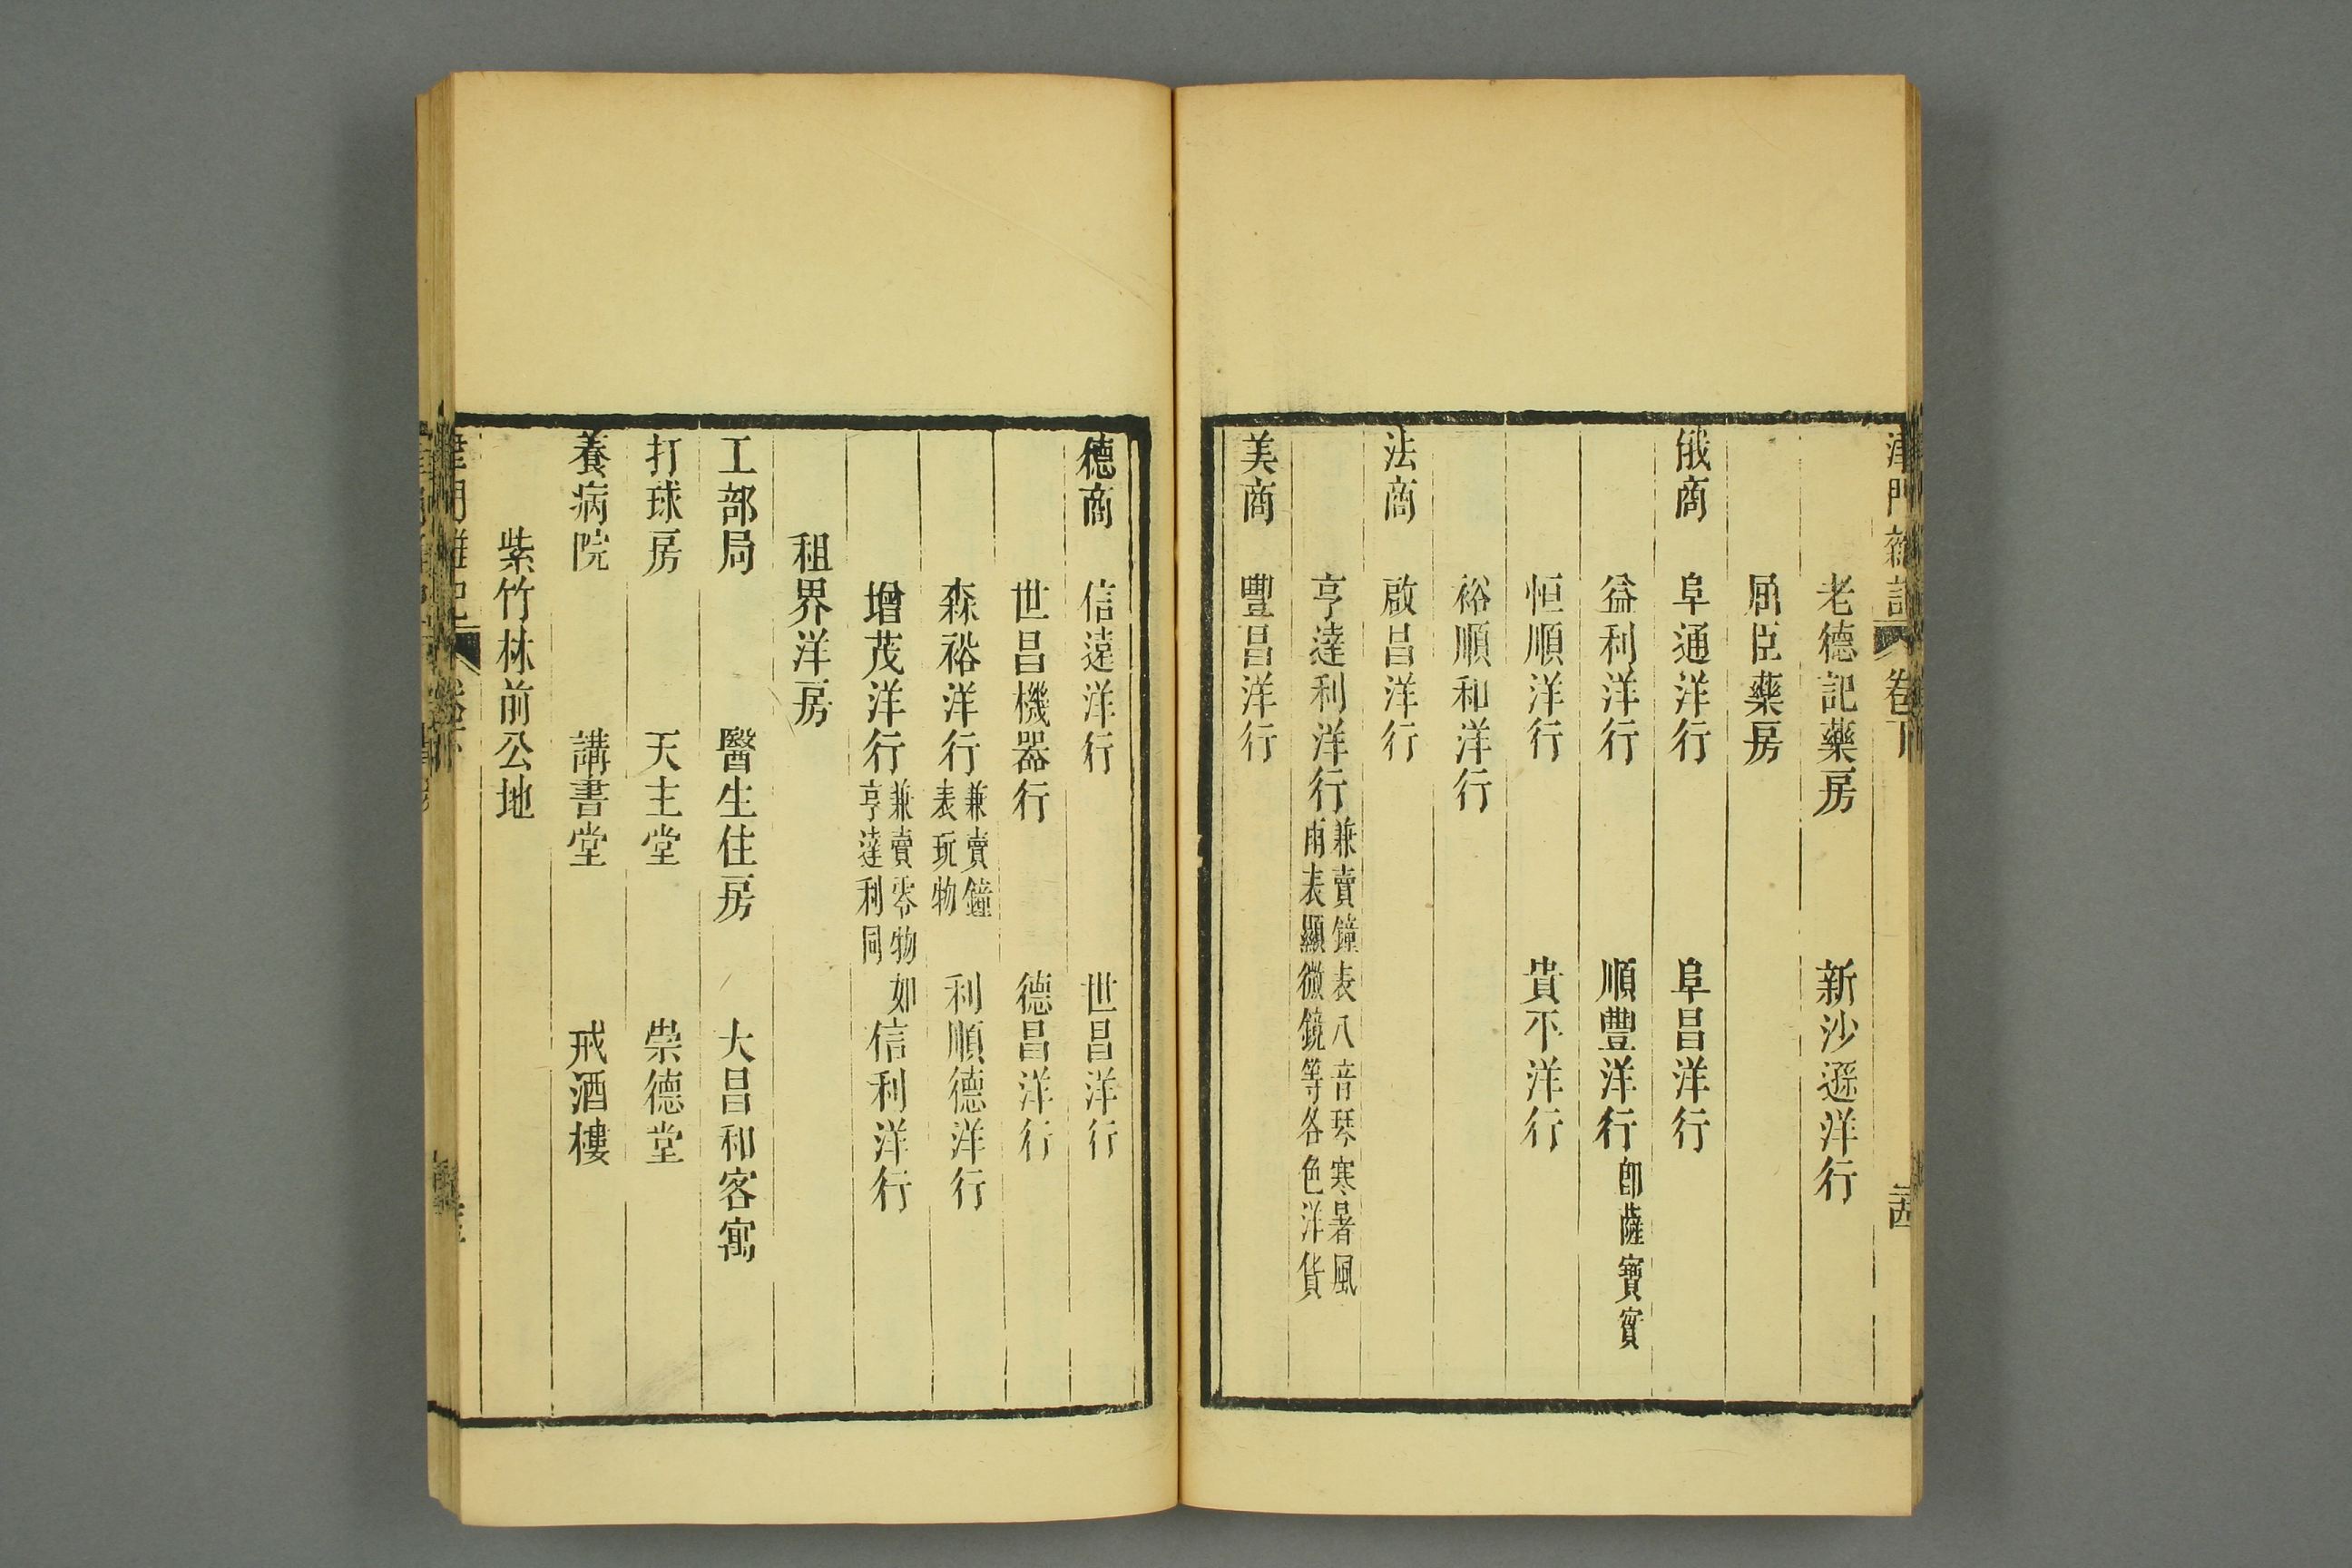 津門雜記 卷下
老德記藥房 新沙遜洋行
屈臣藥房
俄商 阜通洋行 阜昌洋行
益利洋行 順豐洋行 卽薩寶實
恒順洋行 貴不洋行
裕順和洋行
法商 啟昌洋行
亨達利洋行 兼賣鐘表八音琴寒暑風
雨表顯微鏡等各色洋貨
美商 豐昌洋行
德商 信遠洋行 世昌洋行
世昌機器行 德昌洋行
森裕洋行 兼賣鐘
表玩物 利順德洋行
增茂洋行 兼賣零物如
亨達利同 信利洋行
租界洋房
工部局 醫生住房 大昌和客寓
打球房 天主堂 崇德堂
養病院 講書堂 戒酒樓
紫竹林前公地